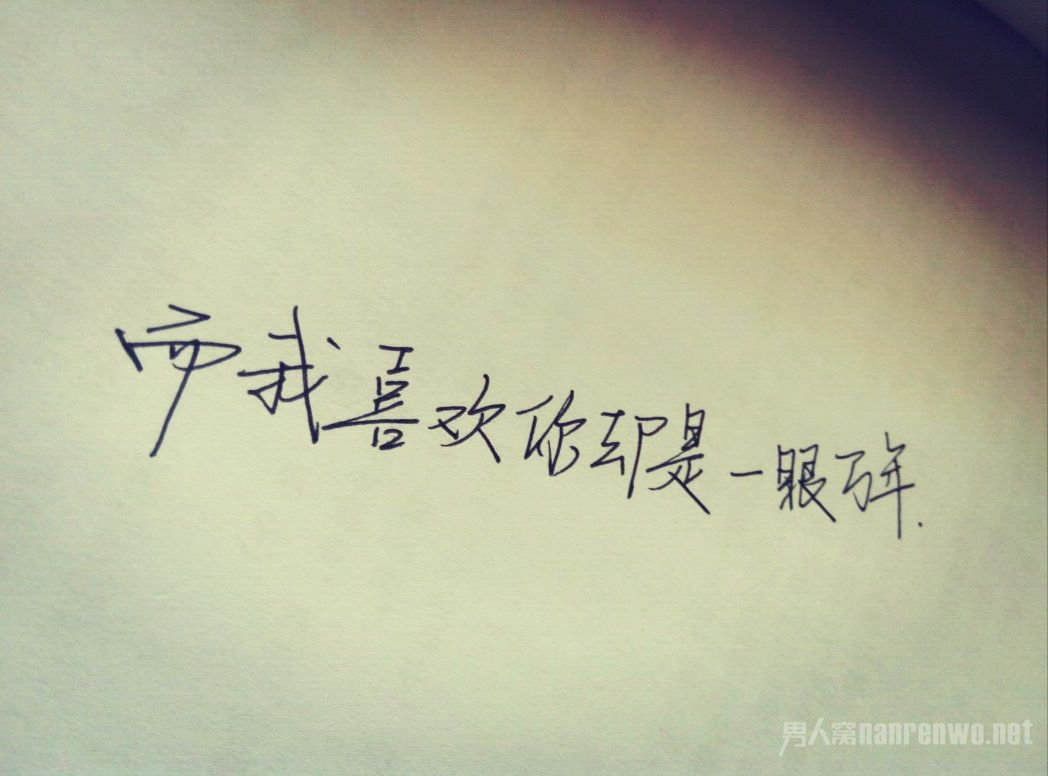 而我喜欢你却是一眼万年.
男人窝nanrenwo.net